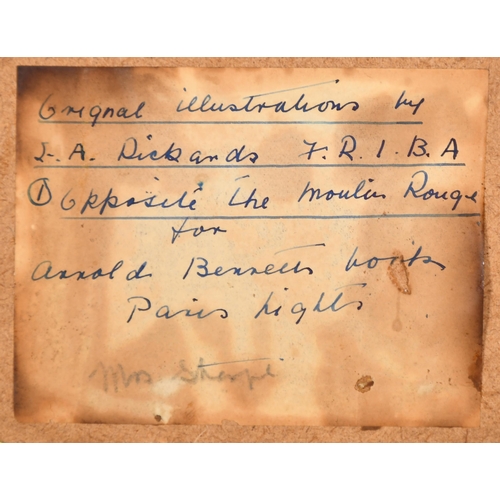 Orignal illustrations by
E. A. Rickards F. R. I. B. A
① Opposite the Moulin Rouge
for
Arnold Bennetts books
Paris Lights
Mrs Sharpe